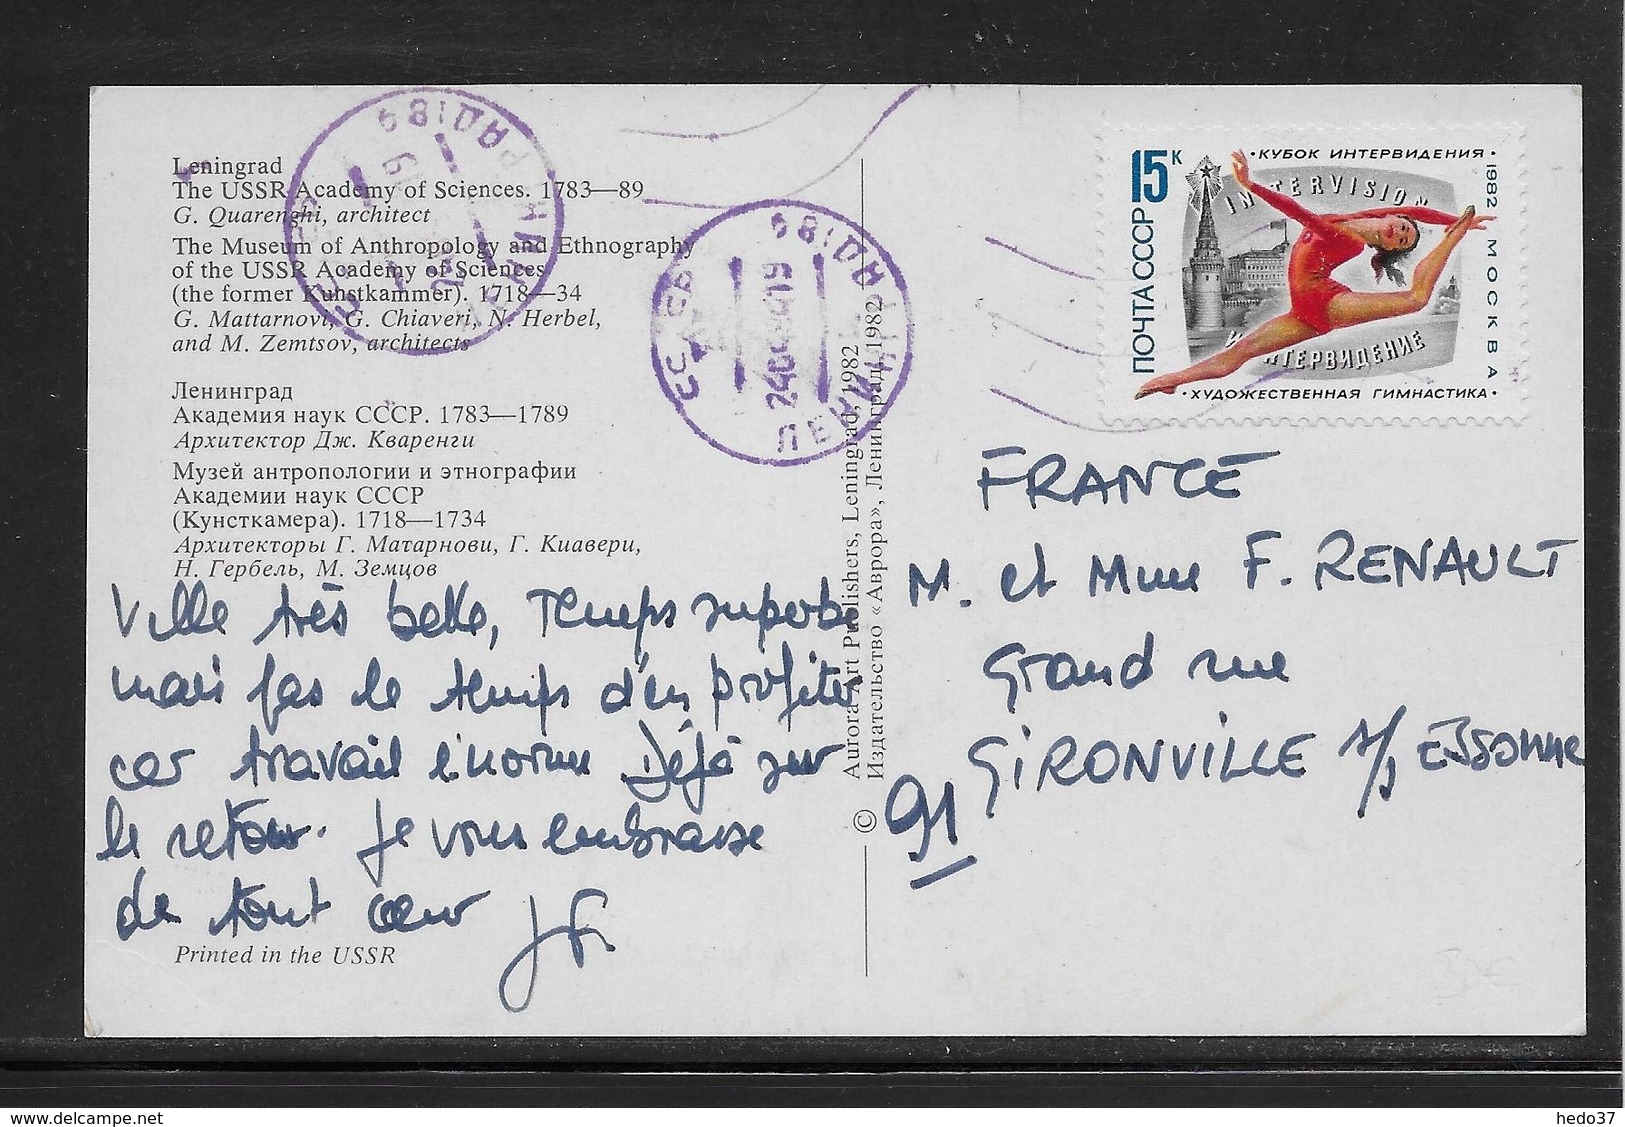 Leningrad
The USSR Academy of Sciences. 1783—89
G. Quarenghi, architect
The Museum of Anthropology and Ethnography
of the USSR Academy of Sciences
(the former Kunstkammer). 1718—34
G. Mattarnovi, G. Chiaveri, N. Herbel,
and M. Zemtsov, architects
Ленинград
Академия наук СССР. 1783—1789
Архитектор Дж. Кваренги
Музей антропологии и этнографии
Академии наук СССР
(Кунсткамера). 1718—1734
Архитекторы Г. Матарнови, Г. Киавери,
Н. Гербель, М. Земцов
Ville très belle, Temps superbe
mais pas le temps d'en profiter
car travail énorme Déjà sur
le retour. Je vous embrasse
de tout cœur JF.
Printed in the USSR
© Aurora Art Publishers, Leningrad, 1982
Издательство «Аврора», Ленинград, 1982
15 к
ПОЧТА СССР
• КУБОК ИНТЕРВИДЕНИЯ •
1982 МОСКВА
INTERVISION
ИНТЕРВИДЕНИЕ
• ХУДОЖЕСТВЕННАЯ ГИМНАСТИКА •
FRANCE
M. et Mme F. RENAULT
Grand rue
GIRONVILLE s/s Essonne
91
30€
www.delcampe.net
hedo37